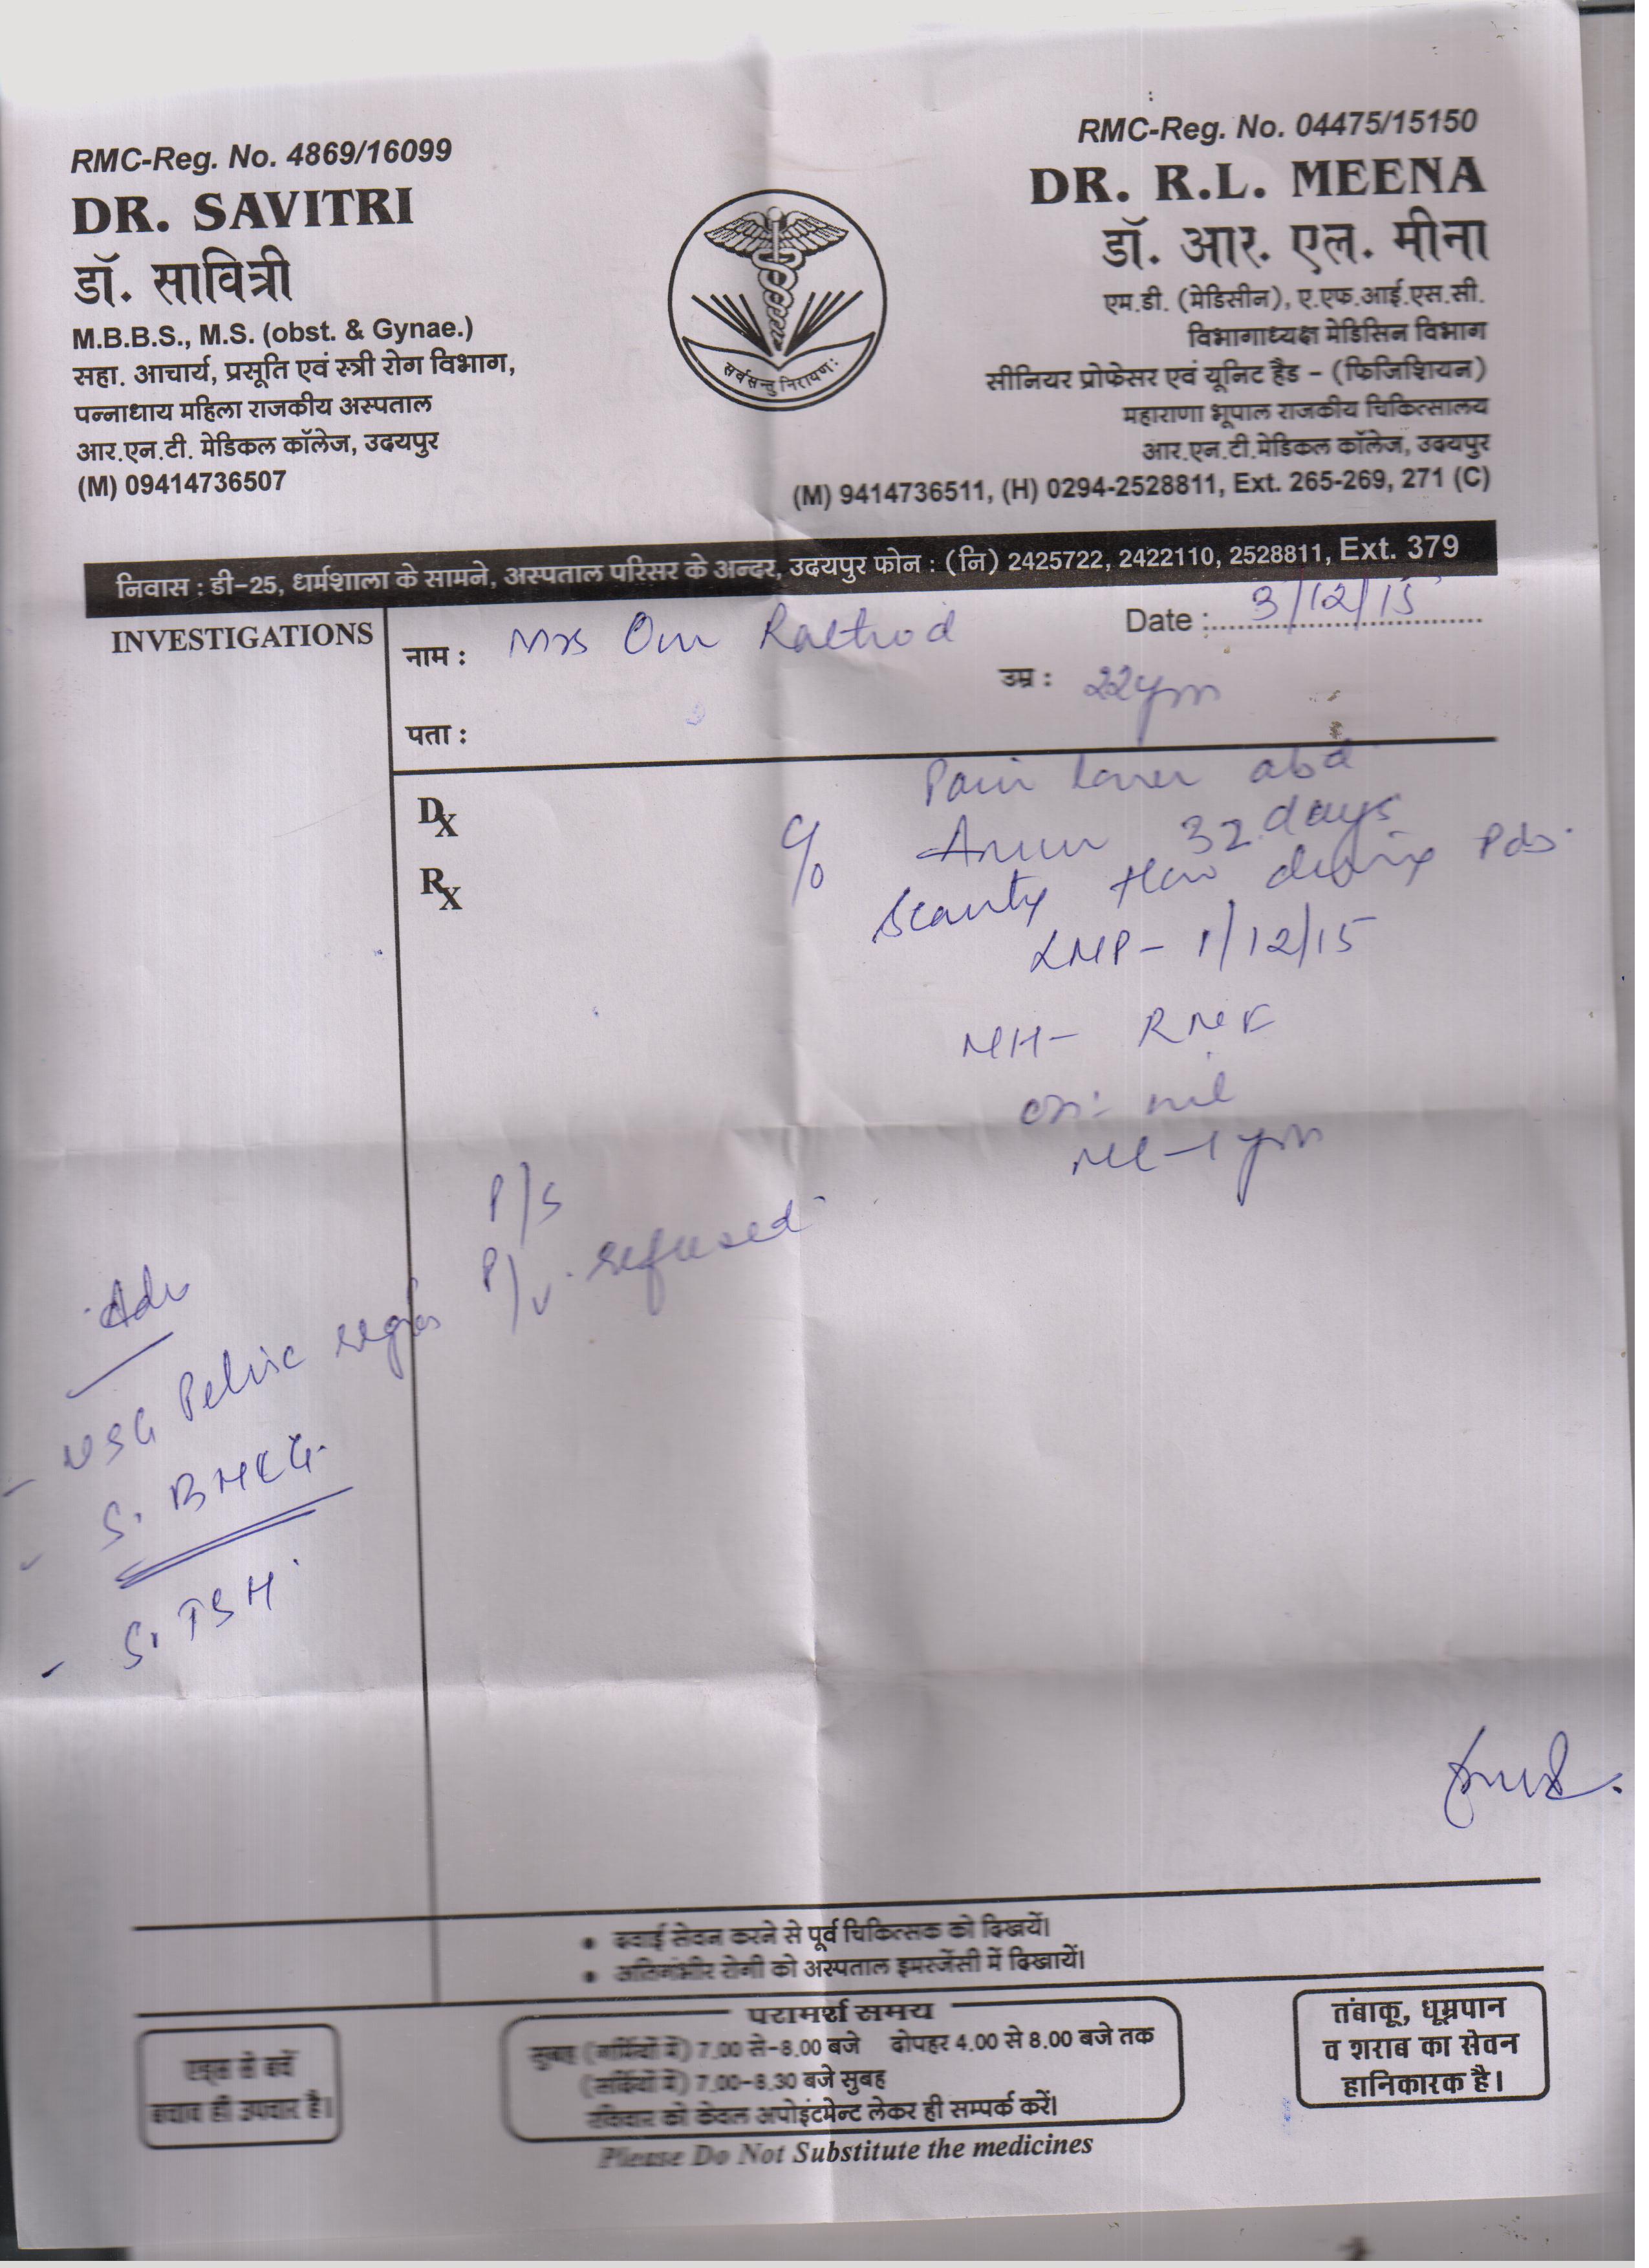 RMC-Reg. No. 4869/16099
DR. SAVITRI
डॉ. सावित्री
M.B.B.S., M.S. (obst. & Gynae.)
सहा. आचार्य, प्रसूति एवं स्त्री रोग विभाग,
पन्नाधाय महिला राजकीय अस्पताल
आर.एन.टी. मेडिकल कॉलेज, उदयपुर
(M) 09414736507
RMC-Reg. No. 04475/15150
DR. R.L. MEENA
डॉ. आर. एल. मीना
एम.डी. (मेडिसीन), ए.एफ.आई.एस.सी.
विभागाध्यक्ष मेडिसिन विभाग
सीनियर प्रोफेसर एवं यूनिट हैड - (फिजिशियन)
महाराणा भूपाल राजकीय चिकित्सालय
आर.एन.टी.मेडिकल कॉलेज, उदयपुर
(M) 9414736511, (H) 0294-2528811, Ext. 265-269, 271 (C)
निवास : डी-25, धार्मशाला के सामने, अस्पताल परिसर के अन्दर, उदयपुर फोन : (नि) 2425722, 2422110, 2528811, Ext. 379
INVESTIGATIONS
नाम : Mrs Om Rathod
Date : 3/12/15
उम्र : 22 yrs
पता :
Dx
Rx
Pain lower abd
c/o 32 days
Scanty flow during Pds.
LMP- 1/12/15
MH-
OH- nil
ML-1 yrs
P/S
P/V. refused
Adv
- USG Pelvic region
- S. BHCG.
- S. TSH.
• दवाई सेवन करने से पूर्व चिकित्सक को दिखयें।
• अतिगंभीर रोगी को अस्पताल इमरजेंसी में दिखायें।
एड्स से बचें
बचाव ही उपचार है।
परामर्श समय
सुबह (गर्मियों में) 7.00 से-8.00 बजे दोपहर 4.00 से 8.00 बजे तक
(सर्दियों में) 7.00-8.30 बजे सुबह
रविवार को केवल अपोइंटमेन्ट लेकर ही सम्पर्क करें।
तंबाकू, धूम्रपान
व शराब का सेवन
हानिकारक है।
Please Do Not Substitute the medicines